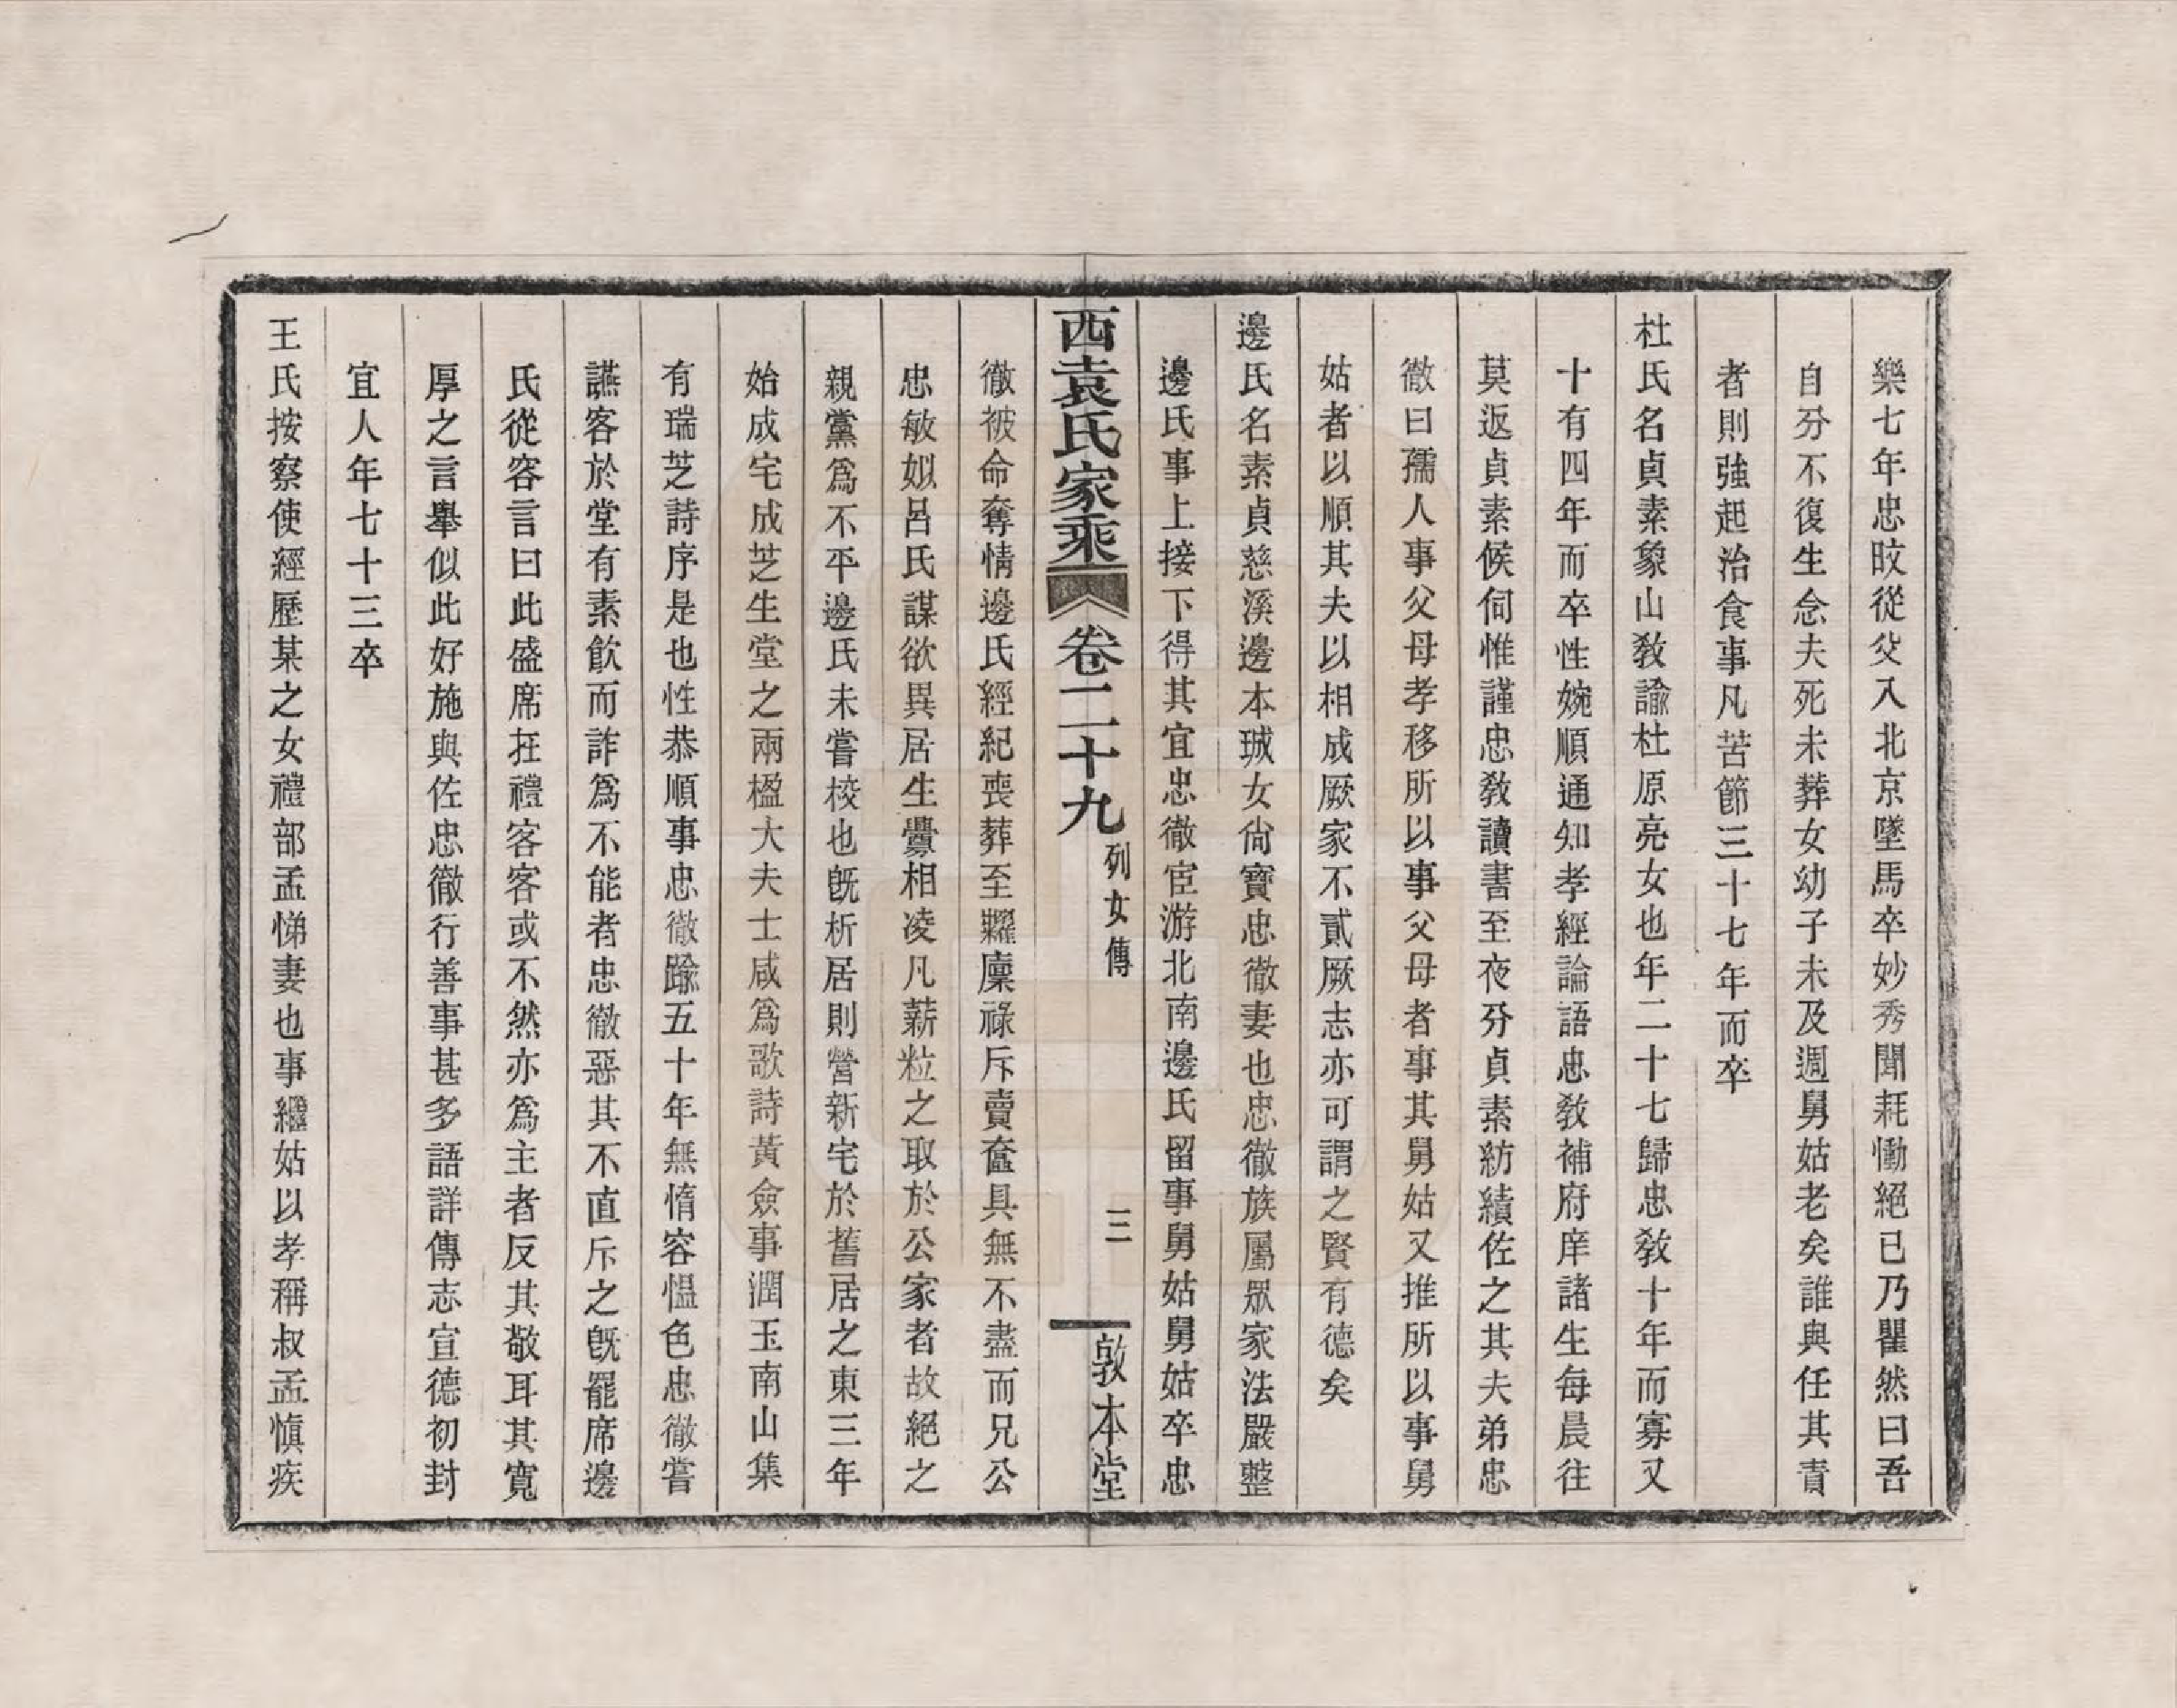 樂七年忠旼從父入北京墜馬卒妙秀聞耗慟絕已乃瞿然曰吾
自分不復生念夫死未葬女幼子未及週舅姑老矣誰與任其責
者則強起治食事凡苦節三十七年而卒
杜氏名貞素象山敎諭杜原亮女也年二十七歸忠敎十年而寡又
十有四年而卒性婉順通知孝經論語忠敎補府庠諸生每晨往
莫返貞素候伺惟謹忠敎讀書至夜分貞素紡績佐之其夫弟忠
徹曰孺人事父母孝移所以事父母者事其舅姑又推所以事舅
姑者以順其夫以相成厥家不貳厥志亦可謂之賢有德矣
邊氏名素貞慈溪邊本珹女尙寶忠徹妻也忠徹族屬眾家法嚴整
邊氏事上接下得其宜忠徹宦游北南邊氏留事舅姑舅姑卒忠
西袁氏家乘 卷二十九 列女傳 三 敦本堂
徹被命奪情邊氏經紀喪葬至糶廩祿斥賣奩具無不盡而兄公
忠敏姒呂氏謀欲異居生釁相凌凡薪粒之取於公家者故絕之
親黨爲不平邊氏未嘗校也旣析居則營新宅於舊居之東三年
始成宅成芝生堂之兩楹大夫士咸爲歌詩黃僉事潤玉南山集
有瑞芝詩序是也性恭順事忠徹踰五十年無惰容慍色忠徹嘗
讌客於堂有素飮而詐爲不能者忠徹惡其不直斥之旣罷席邊
氏從容言曰此盛席在禮客客或不然亦爲主者反其敬耳其寬
厚之言舉似此好施與佐忠徹行善事甚多語詳傳志宣德初封
宜人年七十三卒
王氏按察使經歷某之女禮部孟悌妻也事繼姑以孝稱叔孟愼疾